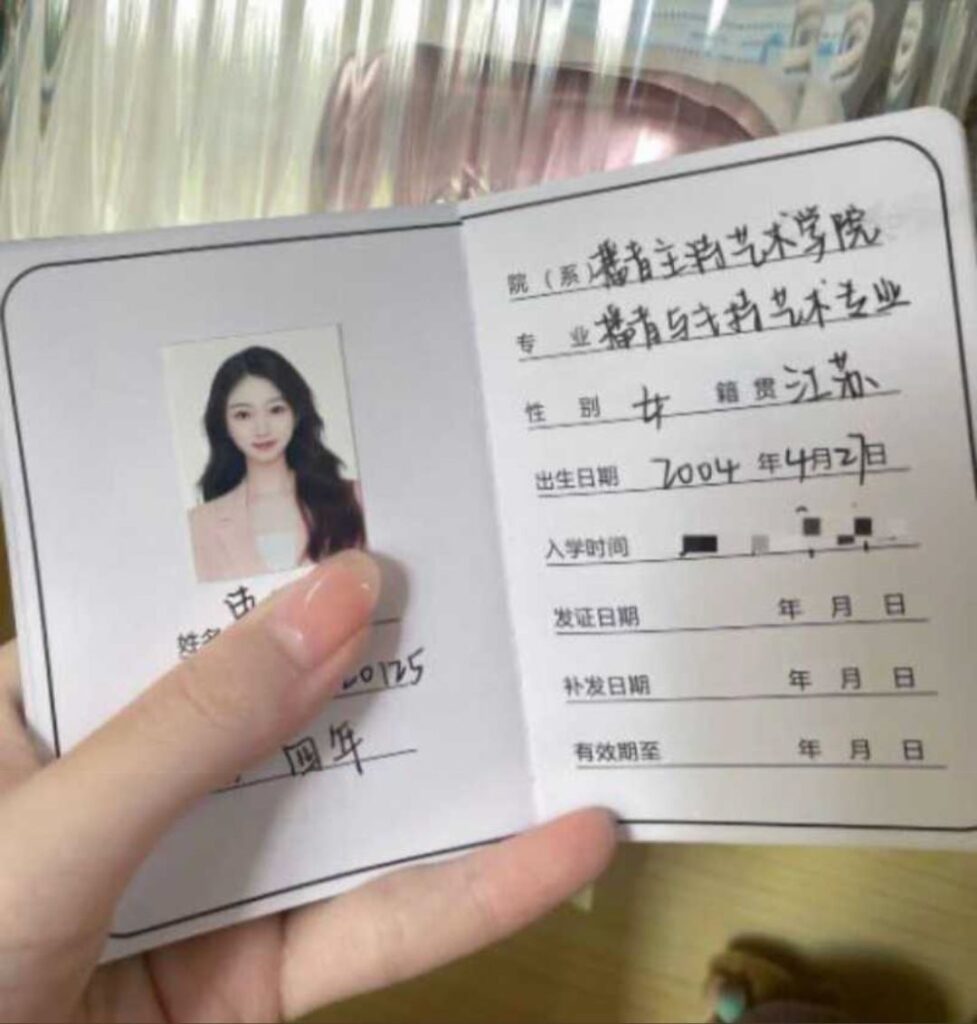 姓名
20125
四年
院（系）播音主持艺术学院
专 业 播音与主持艺术专业
性 别 女 籍贯 江苏
出生日期 2004年4月27日
入学时间
发证日期 年 月 日
补发日期 年 月 日
有效期至 年 月 日